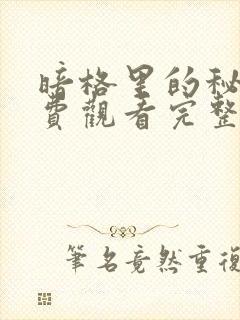 暗格里的秘
費觀看完整
筆名竟然重復